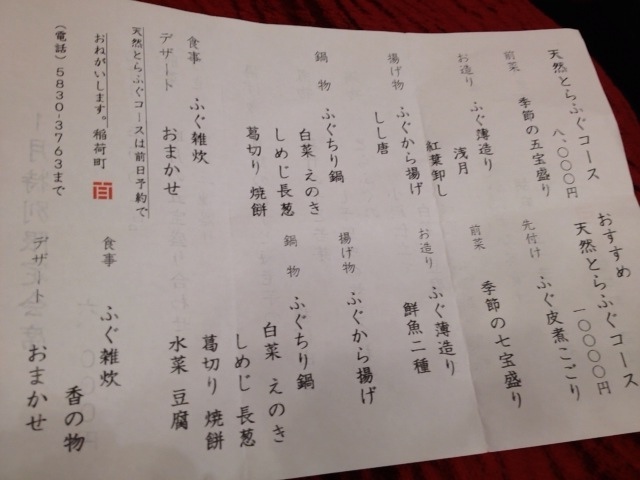 天然とらふぐコース
八、〇〇〇円
前菜 季節の五宝盛り
お造り ふぐ薄造り
浅月
紅葉卸し
揚げ物 ふぐから揚げ
しし唐
鍋物 ふぐちり鍋
白菜 えのき
しめじ 長葱
葛切り 焼餅
食事 ふぐ雑炊
デザート おまかせ
天然とらふぐコースは前日予約で
おねがいします。稲荷町 百
(電話)5830-3763まで
おすすめ
天然とらふぐコース
一〇〇〇〇円
先付け ふぐ皮煮こごり
前菜 季節の七宝盛り
お造り ふぐ薄造り
鮮魚二種
揚げ物 ふぐから揚げ
鍋物 ふぐちり鍋
白菜 えのき
しめじ 長葱
葛切り 焼餅
水菜 豆腐
食事 ふぐ雑炊
香の物
デザート おまかせ